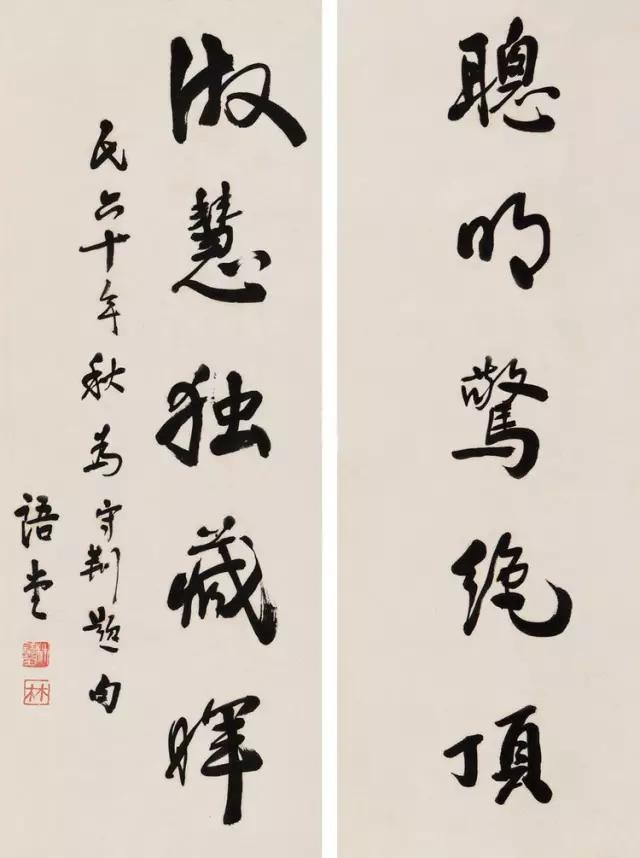 聰明驚絶頂
淑慧独藏暉
民六十年秋為守荆題句
語堂
林